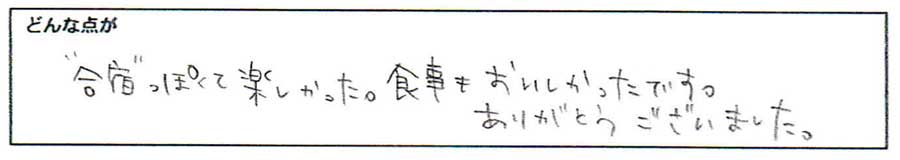 どんな点が
"合宿"っぽくて楽しかった。食事もおいしかったです。
ありがとうございました。